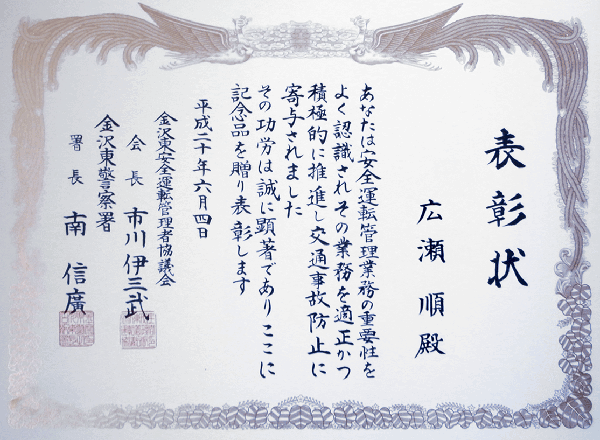 表彰状
広瀬順殿
あなたは安全運転管理業務の重要性を
よく認識されその業務を適正かつ
積極的に推進し交通事故防止に
寄与されました
その功労は誠に顕著でありここに
記念品を贈り表彰します
平成二十年六月四日
金沢東安全運転管理者協議会
会長 市川伊三武
金沢東警察署
署長 南信廣